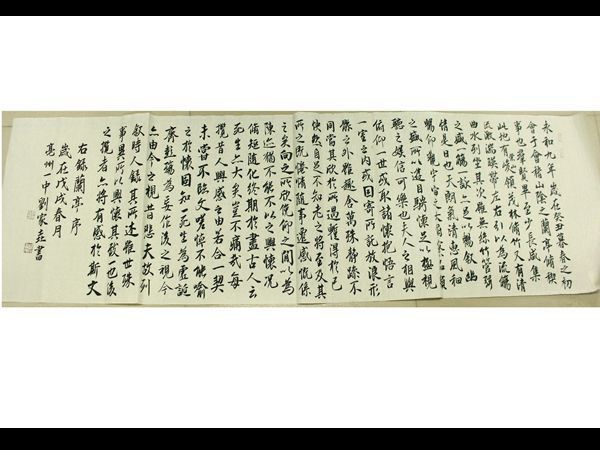 永和九年歲在癸丑暮春之初
會于會稽山陰之蘭亭脩稧
事也羣賢畢至少長咸集
此地有崇山峻領茂林脩竹又有清
流激湍映帶左右引以為流觴
曲水列坐其次雖無絲竹管弦
之盛一觴一詠亦足以暢叙幽
情是日也天朗氣清惠風和
暢仰觀宇宙之大俯察品類
之盛所以遊目騁懷足以極視
聽之娛信可樂也夫人之相與
俯仰一世或取諸懷抱悟言
一室之內或因寄所託放浪形
骸之外雖趣舍萬殊靜躁不
同當其欣於所遇暫得於己
快然自足不知老之將至及其
所之既惓情隨事遷感慨係
之矣向之所欣俛仰之閒以為
陳迹猶不能不以之興懷況
脩短隨化終期於盡古人云
死生亦大矣豈不痛哉每
攬昔人興感之由若合一契
未嘗不臨文嗟悼不能喻
之於懷固知一死生為虛誕
齊彭殤為妄作後之視今
亦由今之視昔悲夫故列
叙時人錄其所述雖世殊
事異所以興懷其致一也後
之攬者亦將有感於斯文
右錄蘭亭序
歲在戊戌春月
亳州一中劉家書